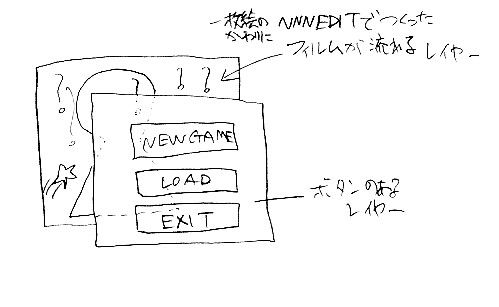 一枚絵の NNNEDITでつくった
かわりに フィルムが流れる レイヤー
? ? ? ?
NEWGAME
LOAD
EXIT
ボタンのある
レイヤー